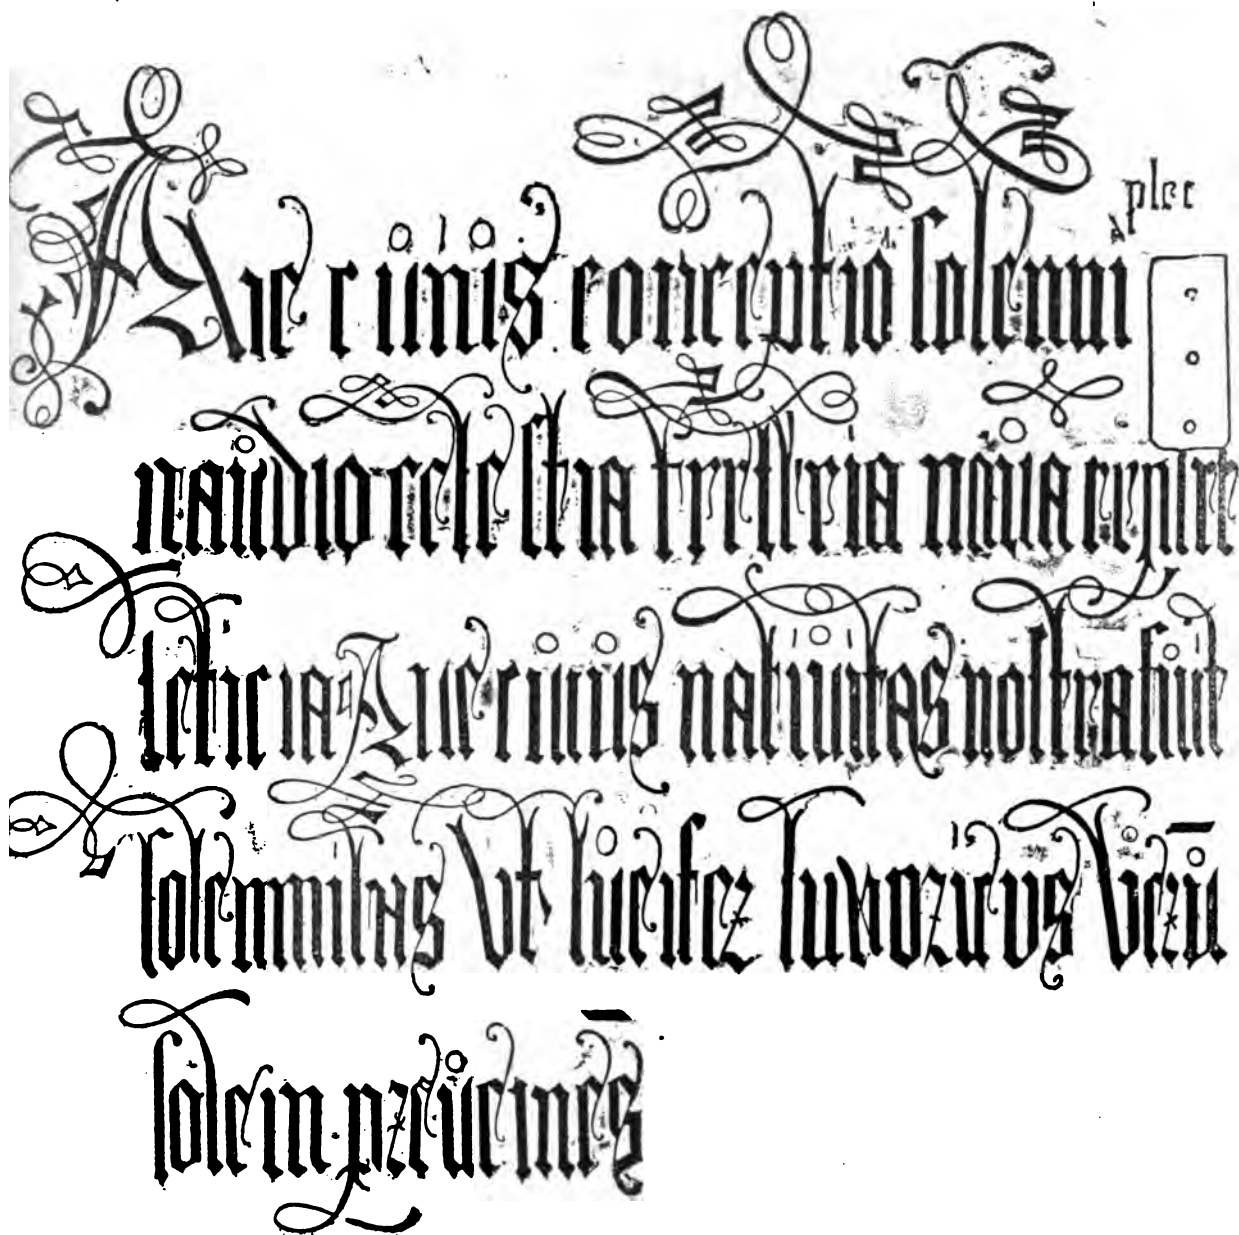 Aue cuius conceptio solemni
gaudio celestia terrestria noua replet
leticia Aue cuius natiuitas nostra fuit
solemnitas Vt lucifer lux oriens Verū
solem preueniēs